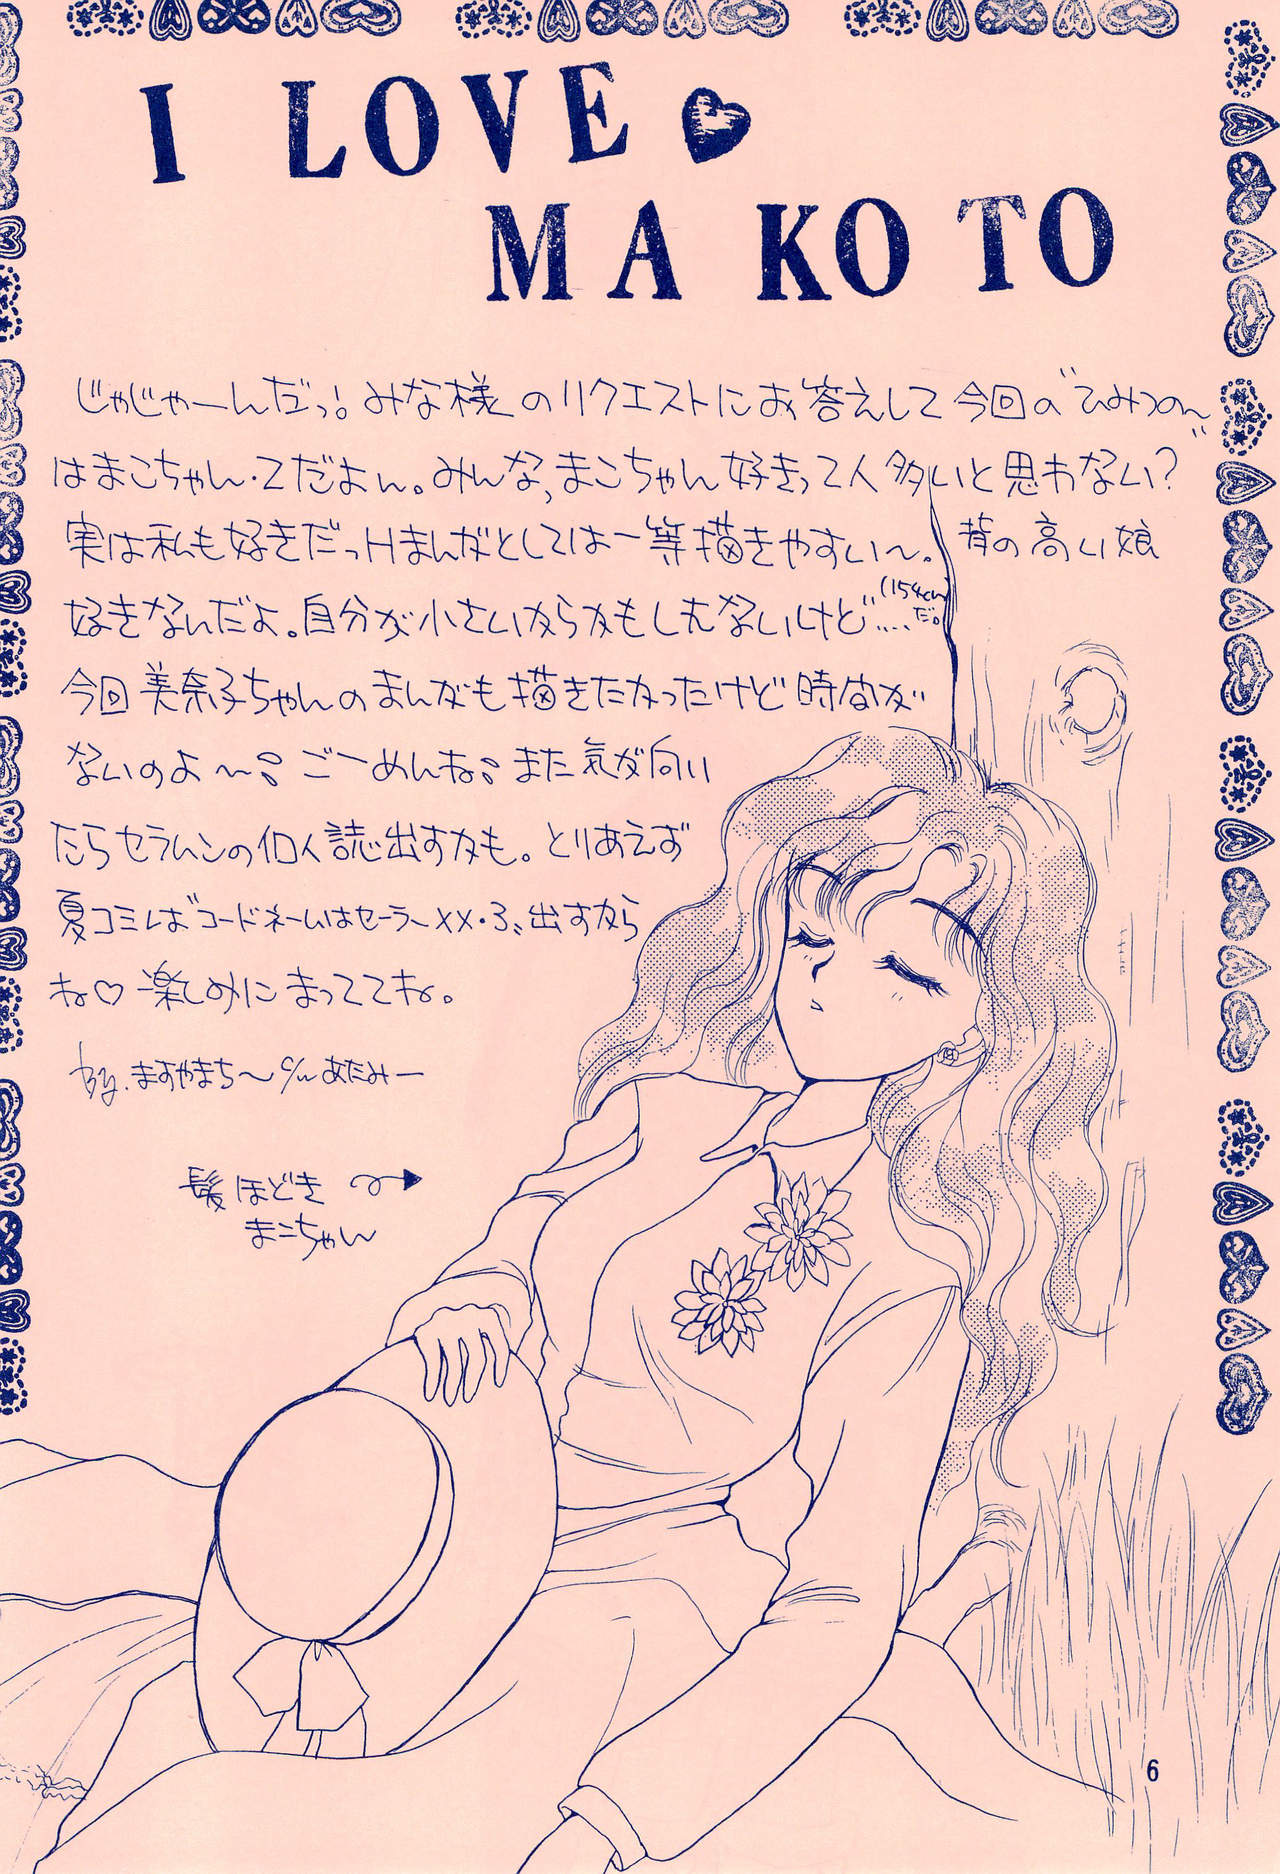 I LOVE
MAKOTO
じゃじゃーんだっ!みな様のリクエストにお答えして今回の"ひみつの〜"
はまこちゃん・Zだよん。みんな,まこちゃん好きって人多いと思わない?
実は私も好きだっHまんがとしては一等描きやすい〜。背の高い娘
好きなんだよ。自分が小さいからかもしんないけど‥‥(154cmだ。)
今回美奈子ちゃんのまんがも描きたかったけど時間が
ないのよ〜。ごーめんね。また気が向い
たらセラムンの個人誌出すかも。とりあえず
夏コミには"コードネームはセーラーXX・3"出すから
ね♡楽しみにまっててね。
by.ますやまち〜 c/w あたみー
髪ほどき
まこちゃん
6